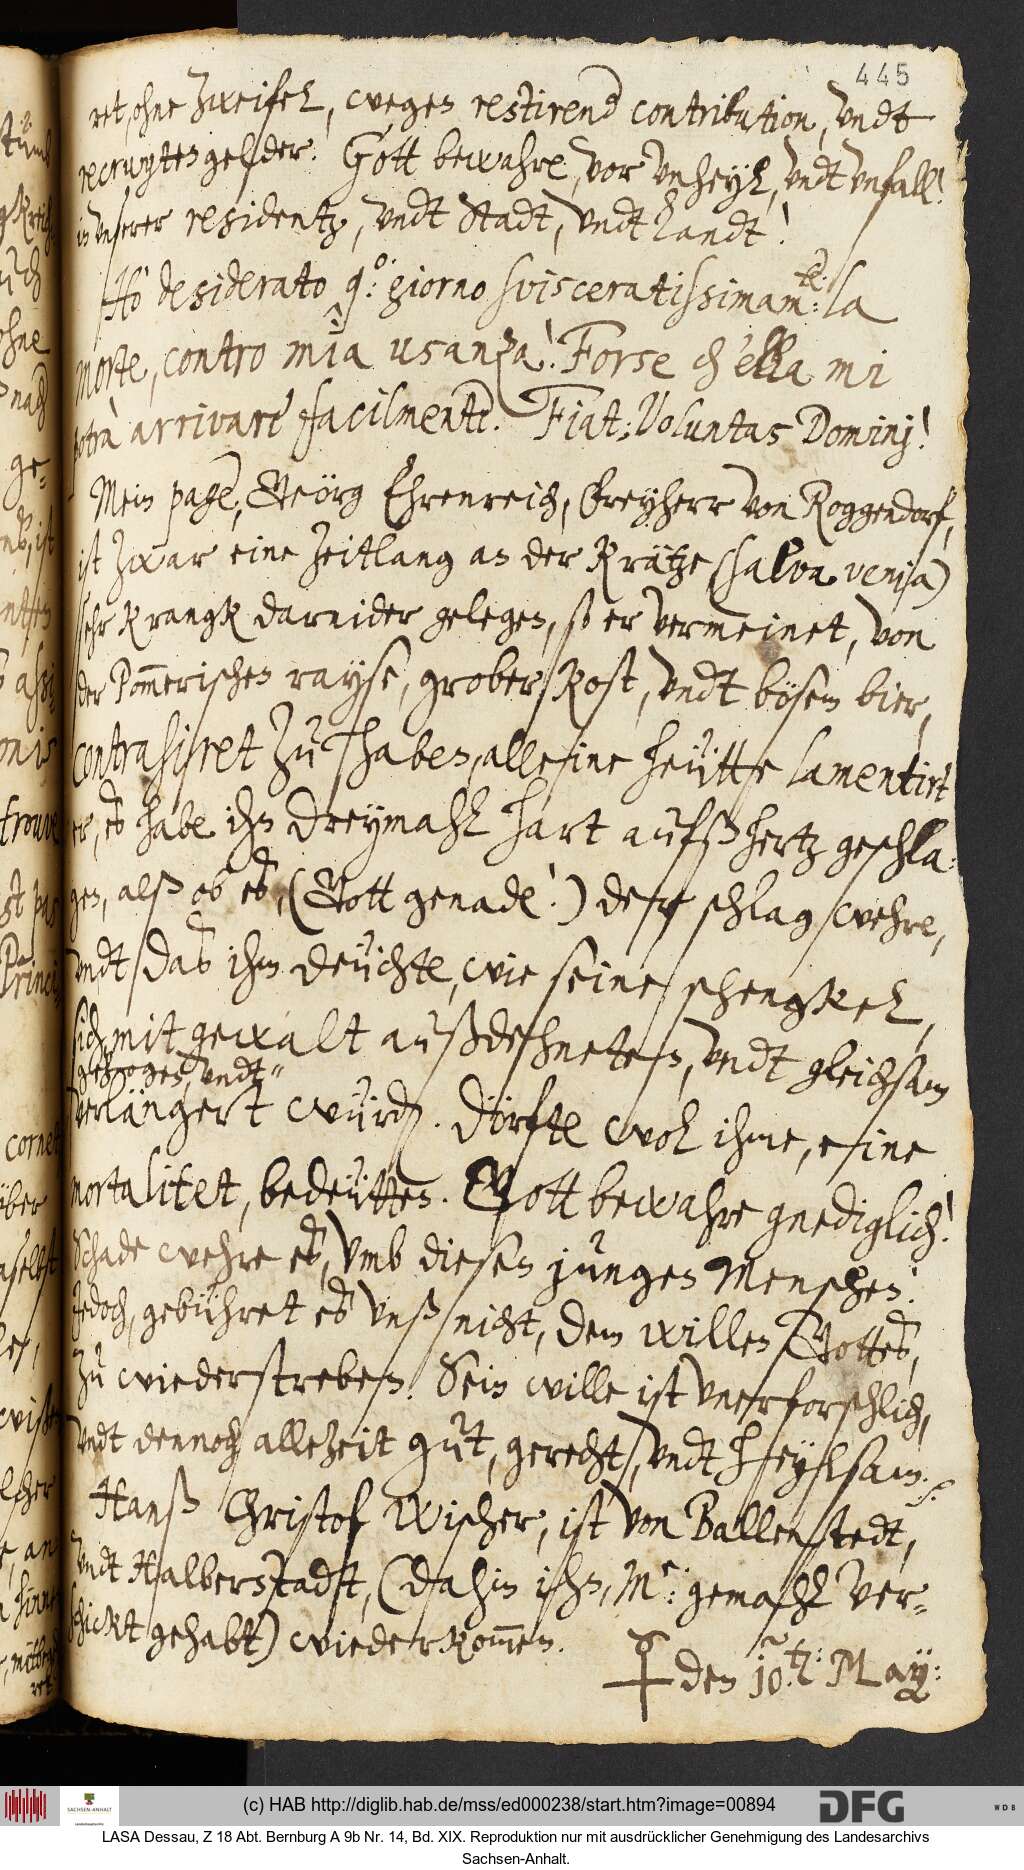 445
ret, ohne Zweifel, wegen restirend contribution, vndt
recruytengelder. Gott bewahre, vor vnheyl, vndt vnfall!
in vnserer residentz, vndt Stadt, vndt Landt!
Hò desiderato q.o: giorno svisceratissimam.te: la
morte, contro mia usanza! Forse ch'ella mi
potrà arrivare facilmente. Fiat, Voluntas Dominj!
Mein page, Geörg Ehrenreich, Freyherr von Roggendorf,
ist zwar eine zeitlang an der Krätze (salva venia)
sehr Krangk darnider gelegen, so er vermeinet, von
der Pom̄erischen rayse, grober Kost, vndt bösem bier,
contrahiret zu haben, alleine heütte lamentirt
er, es habe ihn dreymahl hart aufß hertz geschla-
gen, alß ob es, (Gott genade!) der schlag wehre,
vndt das ihm deüchte, wie seine schengkel,
sich mit gewalt außdehneten, vndt gleichsam
gezogen, vndt
verlängert würden. Dörfte wol ihme, eine
mortalitet, bedeütten. Gott bewahre gnediglich!
Schade wehre es, vmb diesen jungen Menschen!
Jedoch, gebühret es vnß nicht, dem willen Gottes,
zu wiederstreben. Sein wille ist vnerforschlich,
vndt dennoch allezeit gut, gerecht, vndt heylsam.
Hanß Christof Wischer, ist von Ballenstedt,
vndt Halberstadt, (dahin ihn, Me: gemahl ver-
schickt gehabt) wiederkom̄en.
♀ den 10.t: May:
(c) HAB http://diglib.hab.de/mss/ed000238/start.htm?image=00894
SACHSEN-ANHALT
DFG
WDB
LASA Dessau, Z 18 Abt. Bernburg A 9b Nr. 14, Bd. XIX. Reproduktion nur mit ausdrücklicher Genehmigung des Landesarchivs
Sachsen-Anhalt.